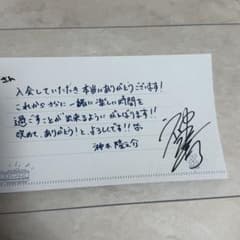 さん
入会していただき本当にありがとうございます!
これからさらに一緒に楽しい時間を
過ごすことが出来るようにがんばります!!
改めて、ありがとう!とよろしくです!!
神木隆之介